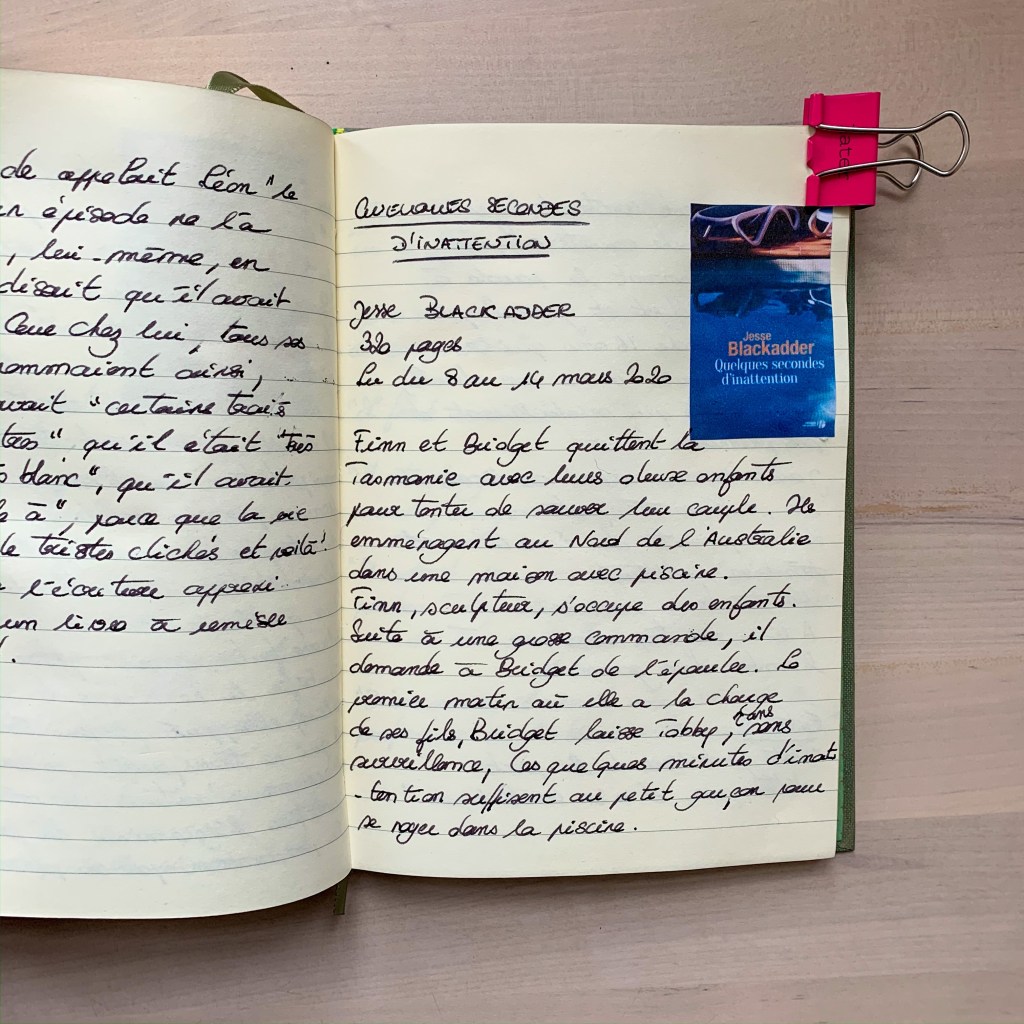 de appelait Léon "le
un épisode ne l'a
, lui-même, en
disait qu'il avait
Ceux chez lui, tous ses
nommaient ainsi,
avait "certains traits
très" qu'il était "très
blanc", qu'il avait
à", parce que la vie
de tristes clichés et voilà!
l'écriture
un livre à
QUELQUES SECONDES
D'INATTENTION
Jesse BLACKADDER
320 pages
Lu du 8 au 14 mars 2020
Finn et Bridget quittent la
Tasmanie avec leurs deux enfants
pour tenter de sauver leur couple. Ils
emménagent au Nord de l'Australie
dans une maison avec piscine.
Finn, sculpteur, s'occupe des enfants.
Suite à une grosse commande, il
demande à Bridget de l'épauler. Le
premier matin où elle a la charge
de ses fils, Bridget laisse Tobby, 2 ans sans
surveillance, Ces quelques minutes d'inat
-tention suffisent au petit garçon pour
se noyer dans la piscine.
Jesse
Blackadder
Quelques secondes
d'inattention